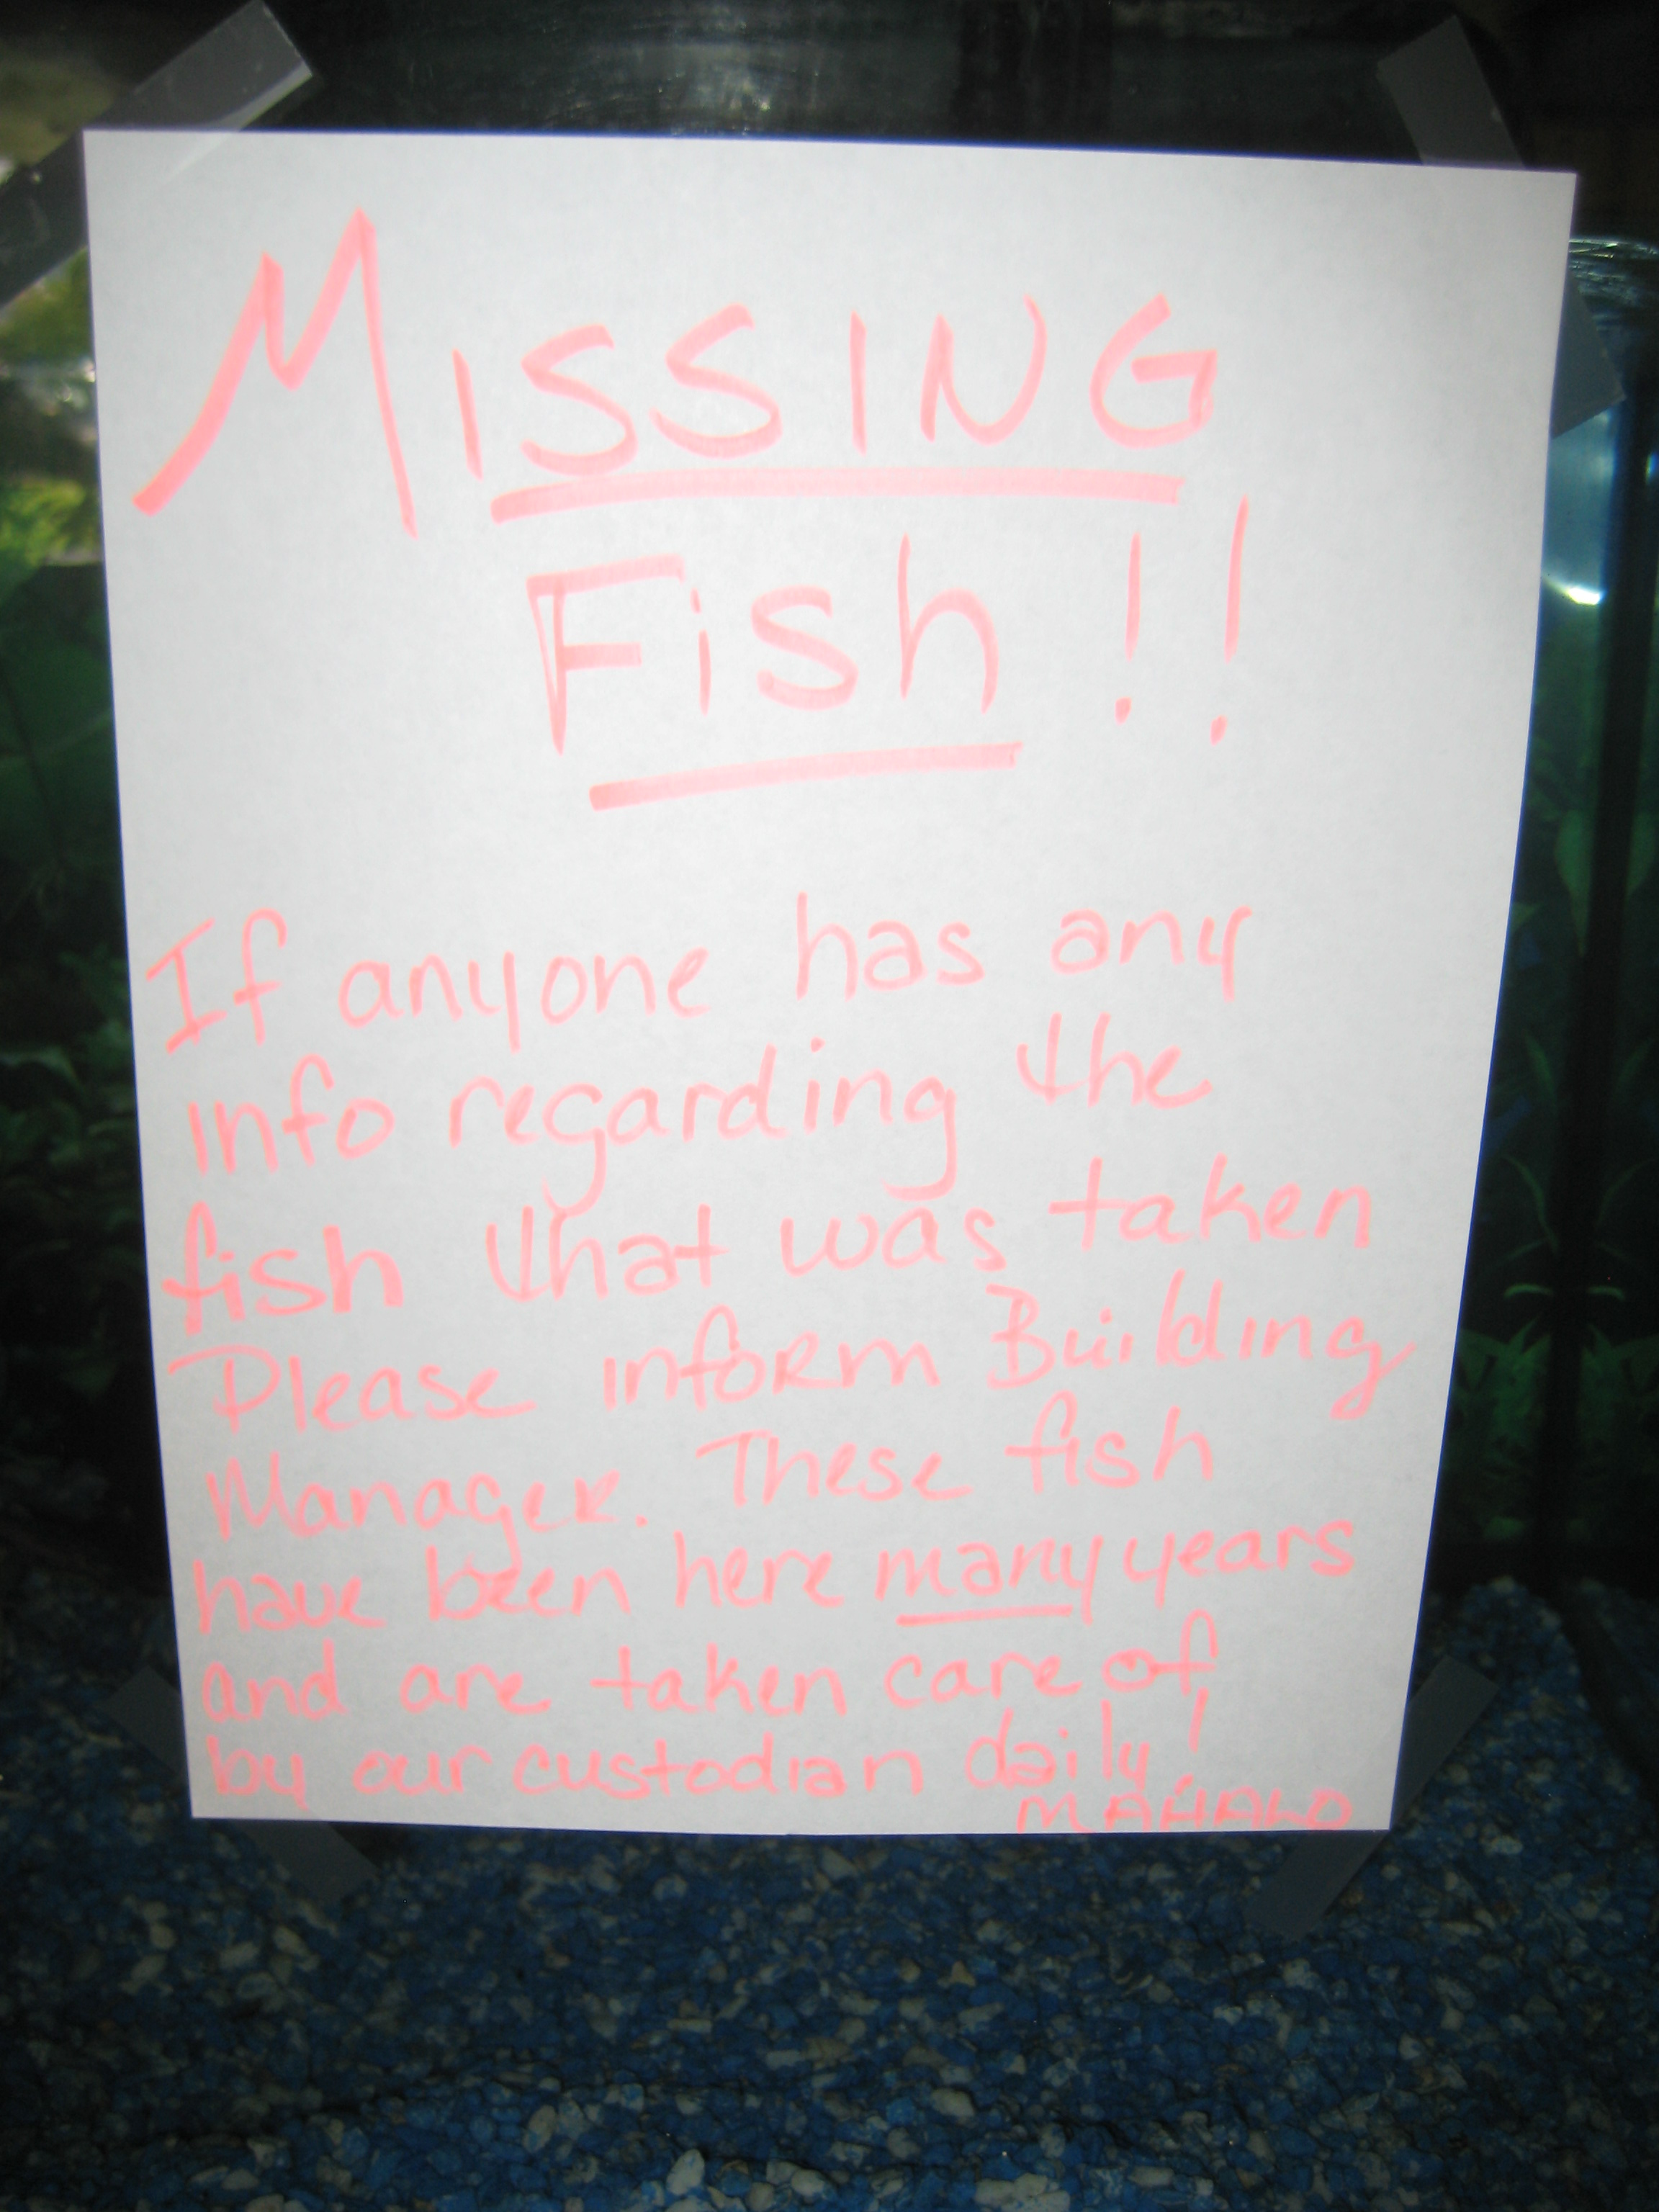 MISSING
Fish!!
If anyone has any
info regarding the
fish that was taken
Please inform Building
Manager. These fish
have been here many years
and are taken care of
by our custodian daily!
MAHALO